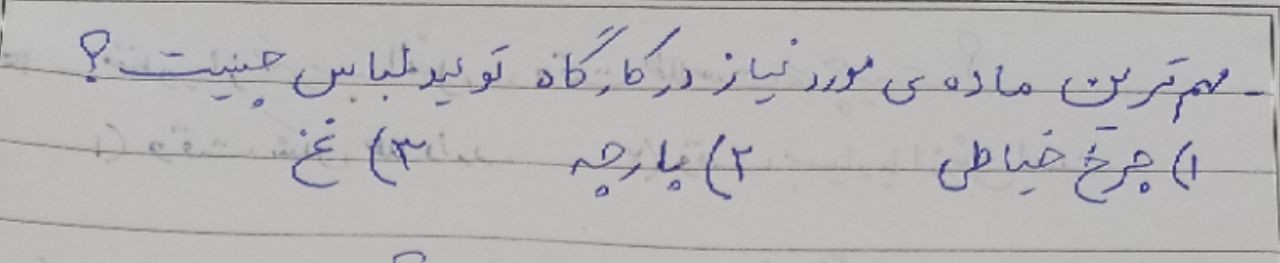 - مهم ترین ماده ی مورد نیاز در کارگاه تولید لباس چیست ؟
۱) چرخ خیاطی ۲) پارچه ۳) نخ